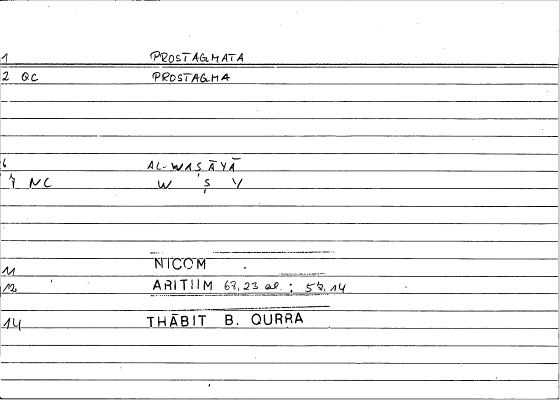 1 PROSTAGMATA
2 QC PROSTAGMA
6 AL-WAṢĀYĀ
7 NC W Ṣ Y
11 NICOM
12 ARITIIM 67,23 al. ; 57,14
14 THĀBIT B. QURRA